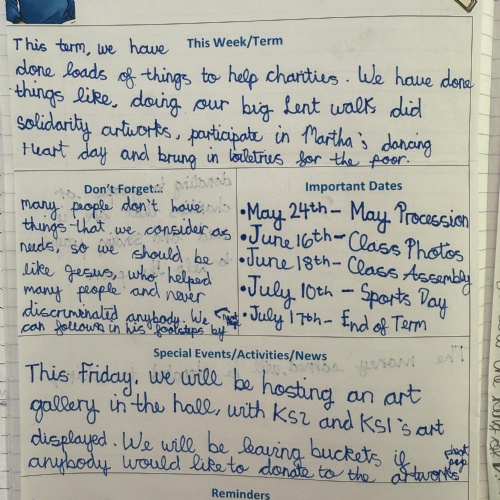 This term, we have This Week/Term
done loads of things to help charities. We have done
things like, doing our big Lent walk, did
solidarity artworks, participate in Martha's dancing
Heart day and brung in toiletries for the poor.
Don't Forget...
many people don't have
things that we consider as
needs, so we should be
like Jesus, who helped
many people and never
discriminated anybody. We
can follow in his footsteps by
Important Dates
•May 24th - May Procession
•June 16th - Class Photos
•June 18th - Class Assembly
•July 10th - Sports Day
•July 17th - End of Term
Special Events/Activities/News
This Friday, we will be hosting an art
gallery in the hall, with KS2 and KS1's art
displayed. We will be leaving buckets if
anybody would like to donate to the artworks
Reminders